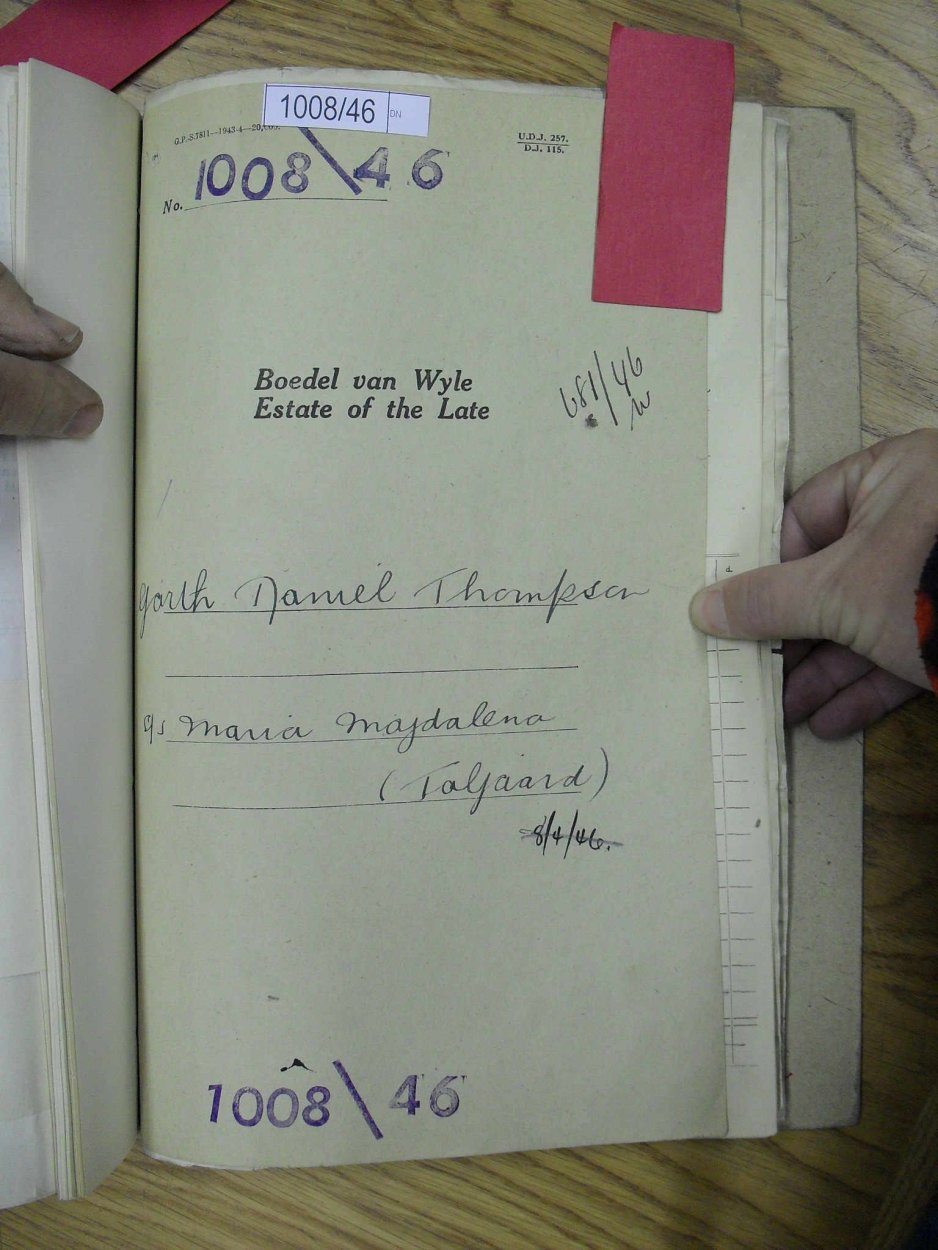 1008/46 DN
G.P.-S.7811—1943-4—20,000.
U.D.J. 257.
D.J. 115.
No. 1008\46
Boedel van Wyle
Estate of the Late
681/46
Garth Daniel Thompson
Maria Magdalena
(Taljaard)
8/4/46.
1008\46
d